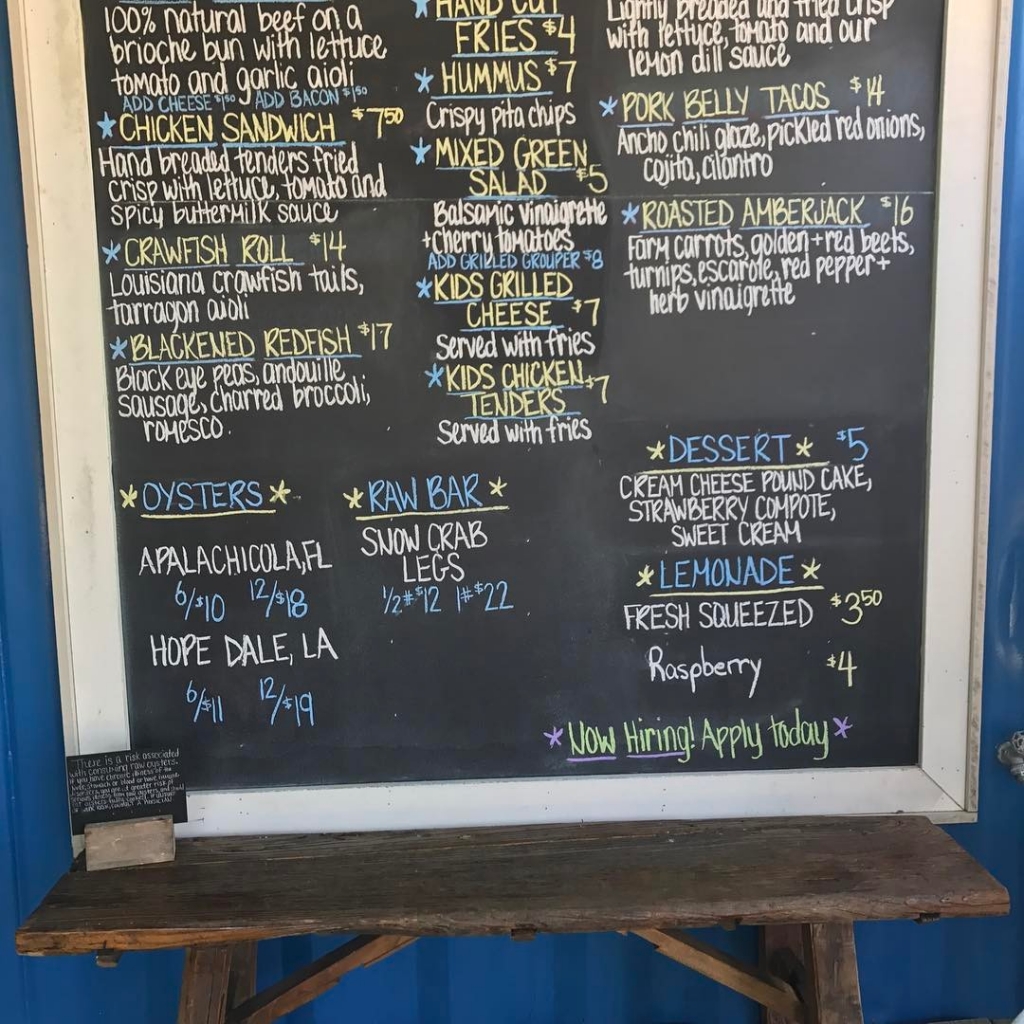 100% natural beef on a
brioche bun with lettuce
tomato and garlic aioli
ADD CHEESE $1.50 ADD BACON $1.50
* CHICKEN SANDWICH $7.50
Hand breaded tenders fried
crisp with lettuce, tomato and
spicy buttermilk sauce
* CRAWFISH ROLL $14
Louisiana crawfish tails,
tarragon aioli
* BLACKENED REDFISH $17
Black eye peas, andouille
sausage, charred broccoli,
romesco.
* HAND CUT
FRIES $4
* HUMMUS $7
Crispy pita chips
* MIXED GREEN
SALAD $5
Balsamic vinaigrette
+cherry tomatoes
ADD GRILLED GROUPER $8
* KIDS GRILLED
CHEESE $7
Served with fries
* KIDS CHICKEN
TENDERS $7
Served with fries
Lightly breaded and fried crisp
with lettuce, tomato and our
lemon dill sauce
* PORK BELLY TACOS $14
Ancho chili glaze, pickled red onions,
cojita, cilantro
* ROASTED AMBERJACK $16
Farm carrots, golden + red beets,
turnips, escarole, red pepper +
herb vinaigrette
* OYSTERS *
APALACHICOLA, FL
6/$10 12/$18
HOPE DALE, LA
6/$11 12/$19
* RAW BAR *
SNOW CRAB
LEGS
1/2# $12 1# $22
* DESSERT * $5
CREAM CHEESE POUND CAKE,
STRAWBERRY COMPOTE,
SWEET CREAM
* LEMONADE *
FRESH SQUEEZED $3.50
Raspberry $4
* Now Hiring! Apply today *
There is a risk associated
with consuming raw oysters.